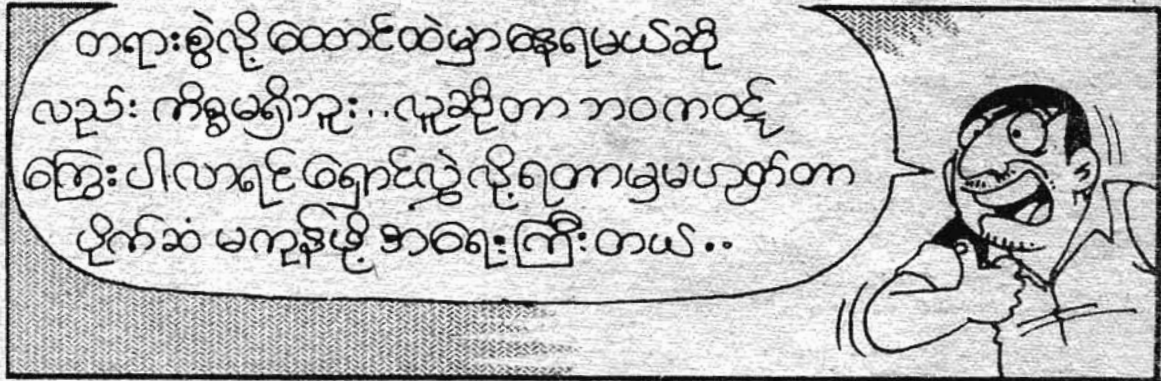 တရားစွဲလို့ ထောင်ထဲမှာ နေရမယ်ဆို
လည်း ကိစ္စမရှိဘူး..လူဆိုတာ ဘဝကဝဋ်
ကြွေးပါလာရင် ရှောင်လွှဲလို့ရတာမှမဟုတ်တာ
ပိုက်ဆံ မကုန်ဖို့ အရေးကြီးတယ်..